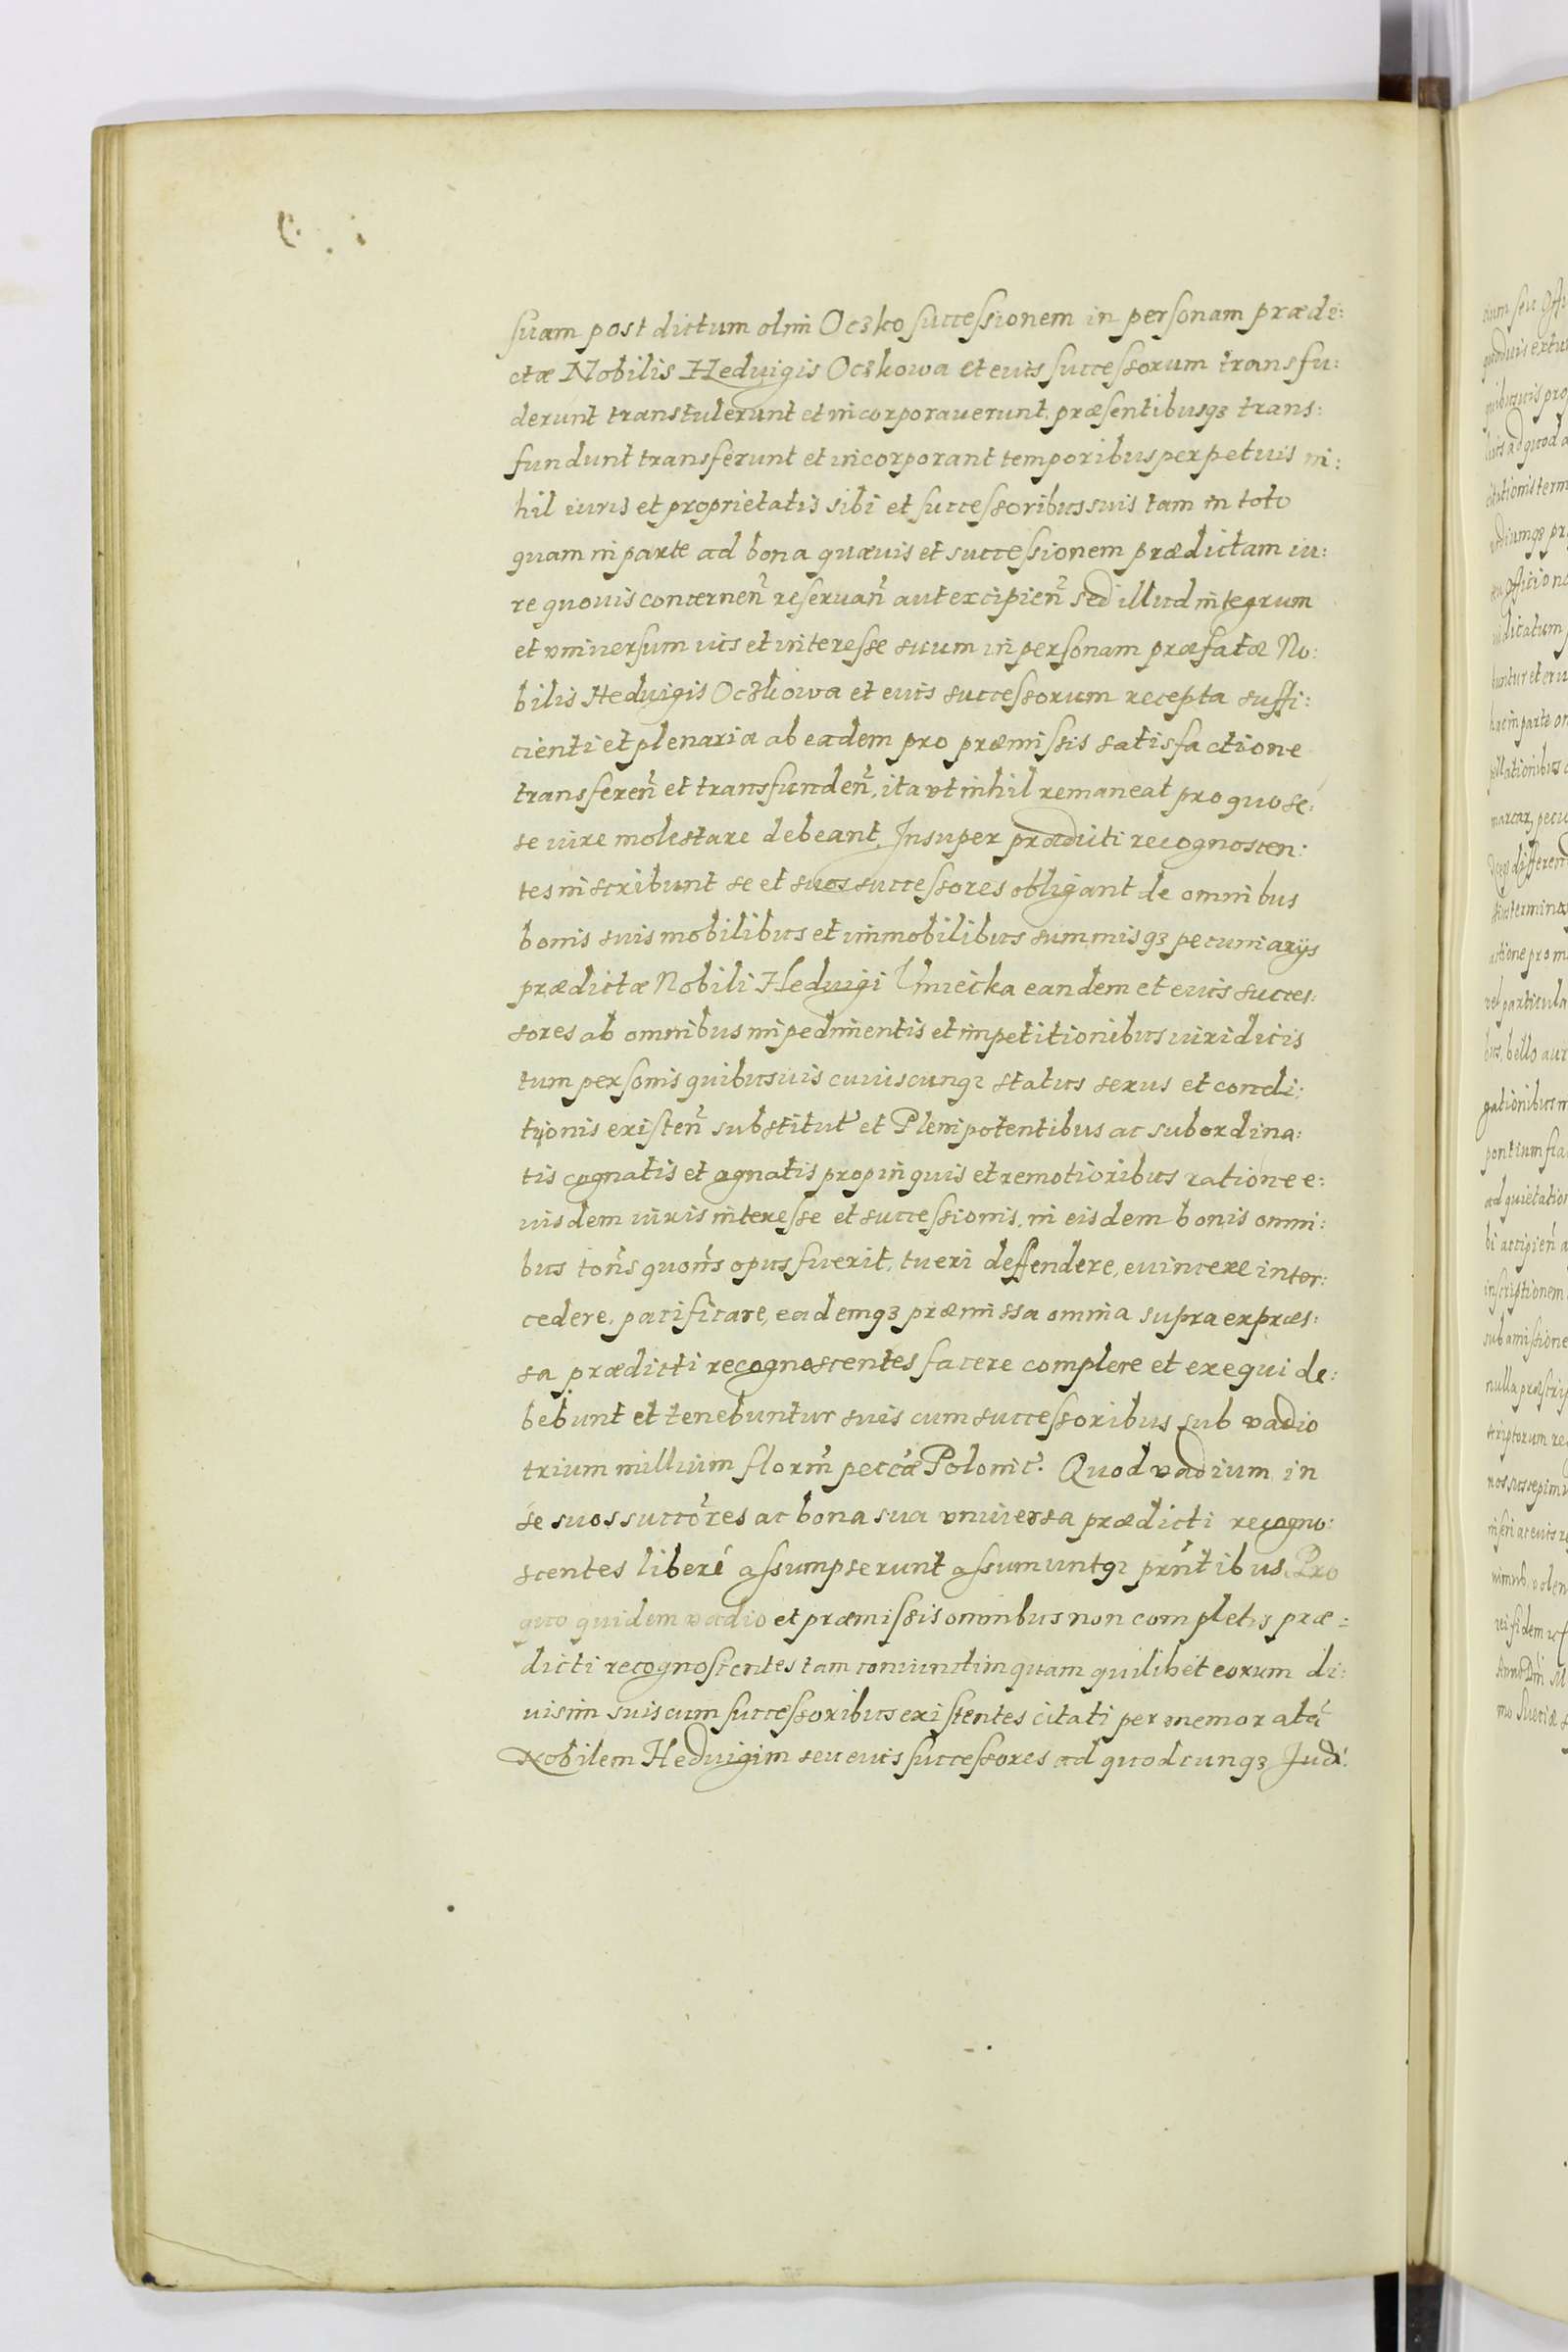 suam post dictum olim Oczko successionem in personam prædi:
ctæ Nobilis Heduigis Oczkowa et eius successorum transfu:
derunt transtulerunt et incorporauerunt, præsentibusq3 trans:
fundunt transferunt et incorporant temporibus perpetuis ni:
hil iuris et proprietatis sibi et successoribus suis tam in toto
quam in parte ad bona quæuis et successionem prædictam iu:
re quouis concernen̄ reseruan̄ aut excipien̄ sed illud integrum
et vniuersum ius et interesse suum in personam præfatæ No:
bilis Heduigis Oczkowa et eius successorum recepta suffi:
cienti et plenaria ab eadem pro præmissis satisfactione
transferen̄ et transfunden̄, ita vt nihil remaneat pro quo se:
se iure molestare debeant. Insuper prædicti recognoscen:
tes inscribunt se et suos successores obligant de omnibus
bonis suis mobilibus et immobilibus summisq3 pecuniarijs
prædictæ Nobili Heduigi Vmiecka eandem et eius succes:
sores ab omnibus impedimentis et impetitionibus iuridicis
tum personis quibusuis cuiuscunq3 status sexus et condi:
tionis existen̄ substitut' et Plenipotentibus ac subordina:
tis cognatis et agnatis propinquis et remotioribus ratione e:
iusdem iuris interesse et successionis, in eisdem bonis omni:
bus ton̄s quon̄s opus fuerit, tueri deffendere, euincere inter:
cedere, pacificare, eademq3 præmissa omnia supra expræs:
sa prædicti recognoscentes facere complere et exequi de:
bebunt et tenebuntur suis cum successoribus sub vadio
trium millium florm̄ peccæ Polonic'. Quod vadium in
se suos succōres ac bona sua vniuersa prædicti recogno:
scentes liberé assumpserunt assumuntq3 prn̄tibus. Pro
quo quidem vadio et præmissis omnibus non completis præ:
dicti recognoscentes tam coniunctim quam quilibet eorum di:
uisim suis cum successoribus existentes citati per memoratā
Nobilem Heduigim seu eius successores ad quodcunq3 Judi: